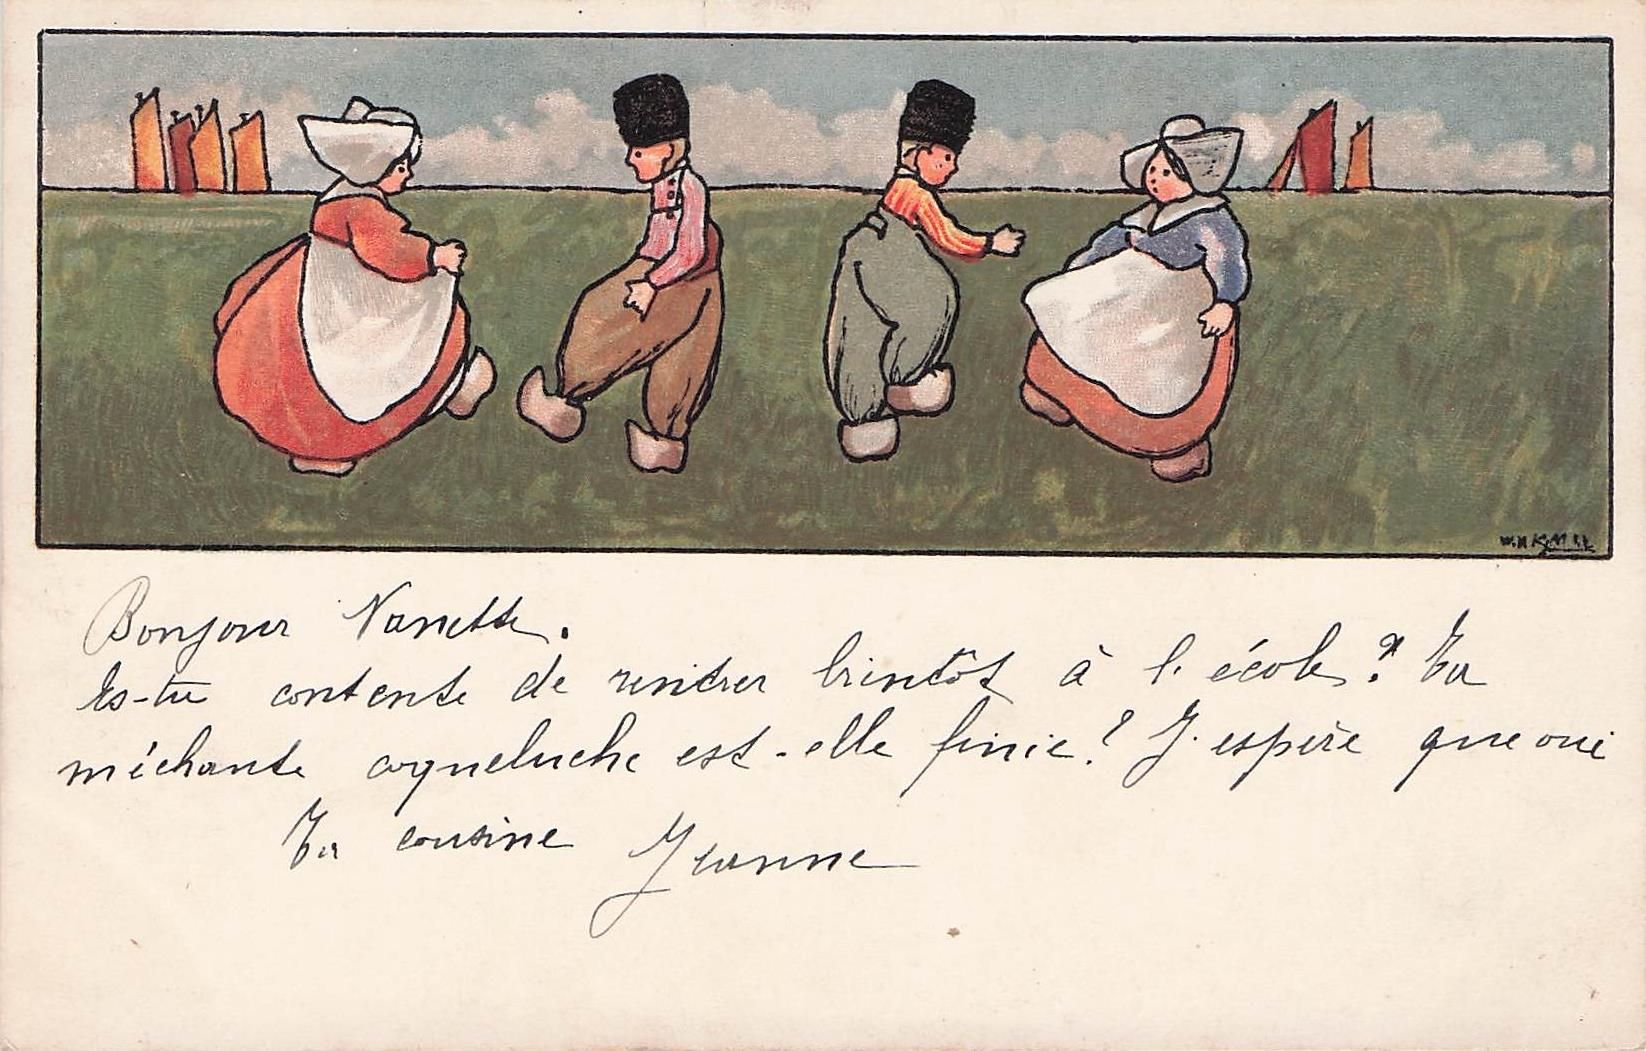 Bonjour Nanette.
Es-tu contente de rentrer bientôt à l'école? Ta
méchante coqueluche est-elle finie? J'espère que oui
Ta cousine Jeanne